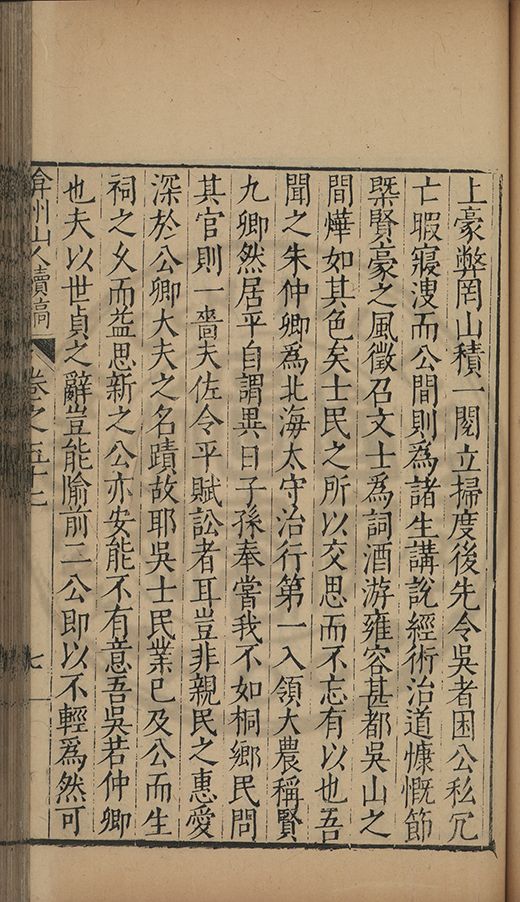 上豪弊罔山積一閱立掃度後先令吳者困公私冗
亡暇寢溲而公間則為諸生講說經術治道慷慨節
槩賢豪之風徵召文士為詞酒游雍容甚都吳山之
間燁如其色矣士民之所以交思而不忘有以也吾
聞之朱仲卿為北海太守治行第一入領大農稱賢
九卿然居平自謂異日子孫奉嘗我不如桐鄉民問
其官則一嗇夫佐令平賦訟者耳豈非親民之惠愛
深於公卿大夫之名蹟故耶吳士民業已及公而生
祠之久而益思新之公亦安能不有意吾吳若仲卿
也夫以世貞之辭豈能踰前二公即以不輕為然可
弇州山人續稿 卷之五十二 七